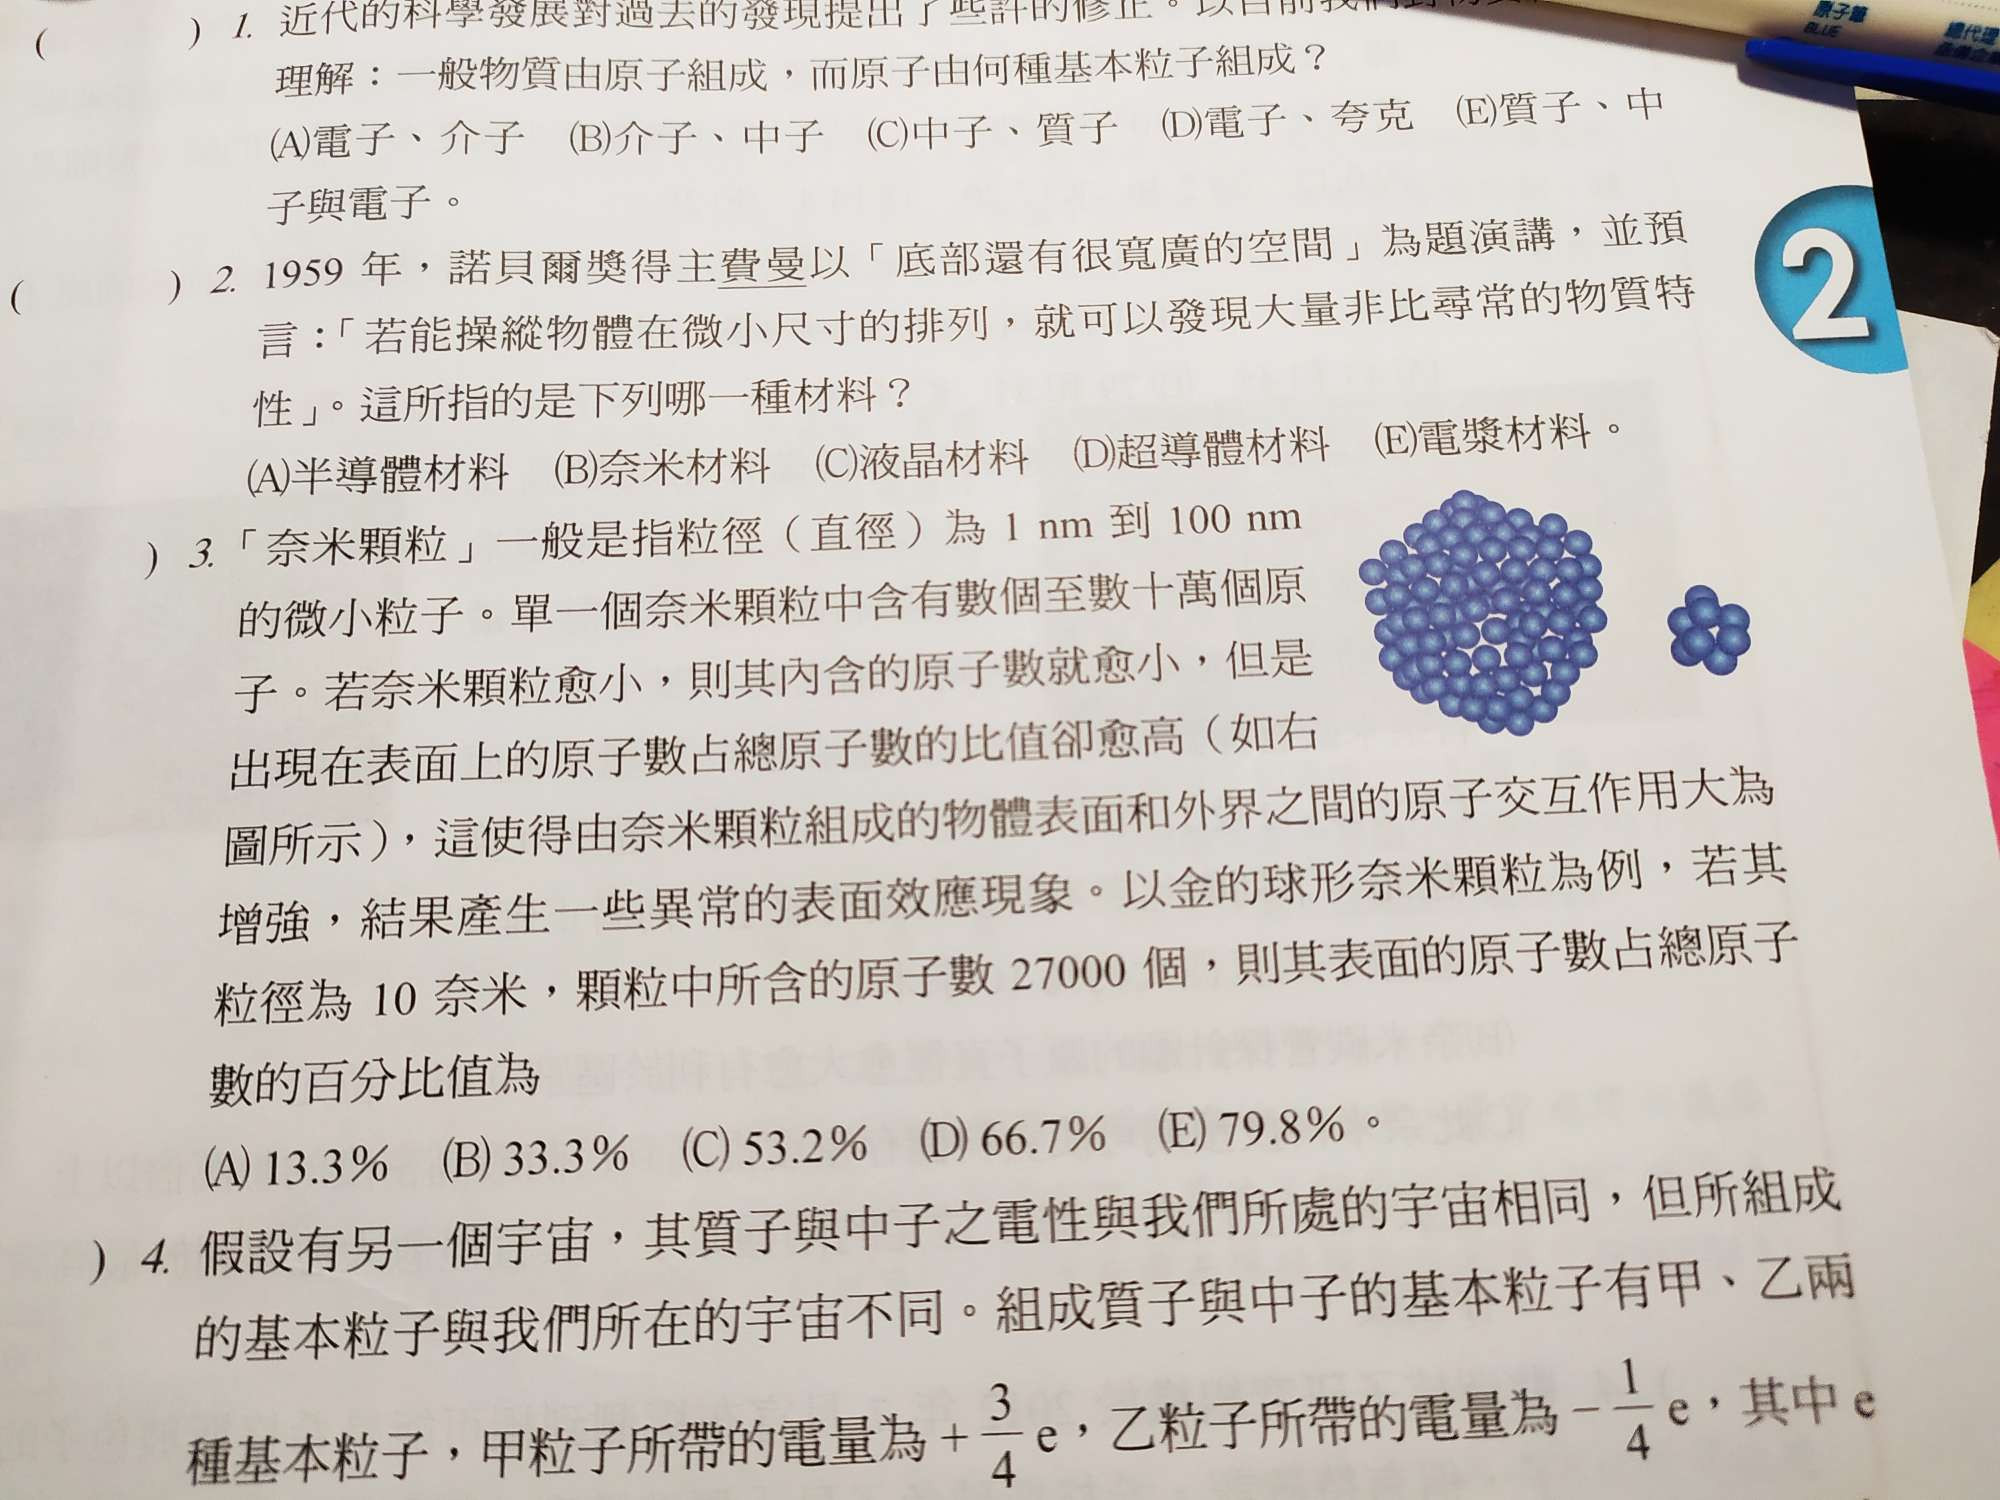 原子筆
BLUE
總代理
( ) 1. 近代的科學發展對過去的發現提出了些許的修正。以目前我們對物質
理解：一般物質由原子組成，而原子由何種基本粒子組成？
(A)電子、介子 (B)介子、中子 (C)中子、質子 (D)電子、夸克 (E)質子、中
子與電子。
( ) 2. 1959 年，諾貝爾獎得主費曼以「底部還有很寬廣的空間」為題演講，並預
言：「若能操縱物體在微小尺寸的排列，就可以發現大量非比尋常的物質特
性」。這所指的是下列哪一種材料？
(A)半導體材料 (B)奈米材料 (C)液晶材料 (D)超導體材料 (E)電漿材料。
2
) 3. 「奈米顆粒」一般是指粒徑（直徑）為 1 nm 到 100 nm
的微小粒子。單一個奈米顆粒中含有數個至數十萬個原
子。若奈米顆粒愈小，則其內含的原子數就愈小，但是
出現在表面上的原子數占總原子數的比值卻愈高（如右
圖所示），這使得由奈米顆粒組成的物體表面和外界之間的原子交互作用大為
增強，結果產生一些異常的表面效應現象。以金的球形奈米顆粒為例，若其
粒徑為 10 奈米，顆粒中所含的原子數 27000 個，則其表面的原子數占總原子
數的百分比值為
(A) 13.3% (B) 33.3% (C) 53.2% (D) 66.7% (E) 79.8%。
) 4. 假設有另一個宇宙，其質子與中子之電性與我們所處的宇宙相同，但所組成
的基本粒子與我們所在的宇宙不同。組成質子與中子的基本粒子有甲、乙兩
種基本粒子，甲粒子所帶的電量為 +3/4 e，乙粒子所帶的電量為 −1/4 e，其中 e